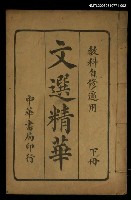 教科自修適用
下冊
文選精華
中華書局印行